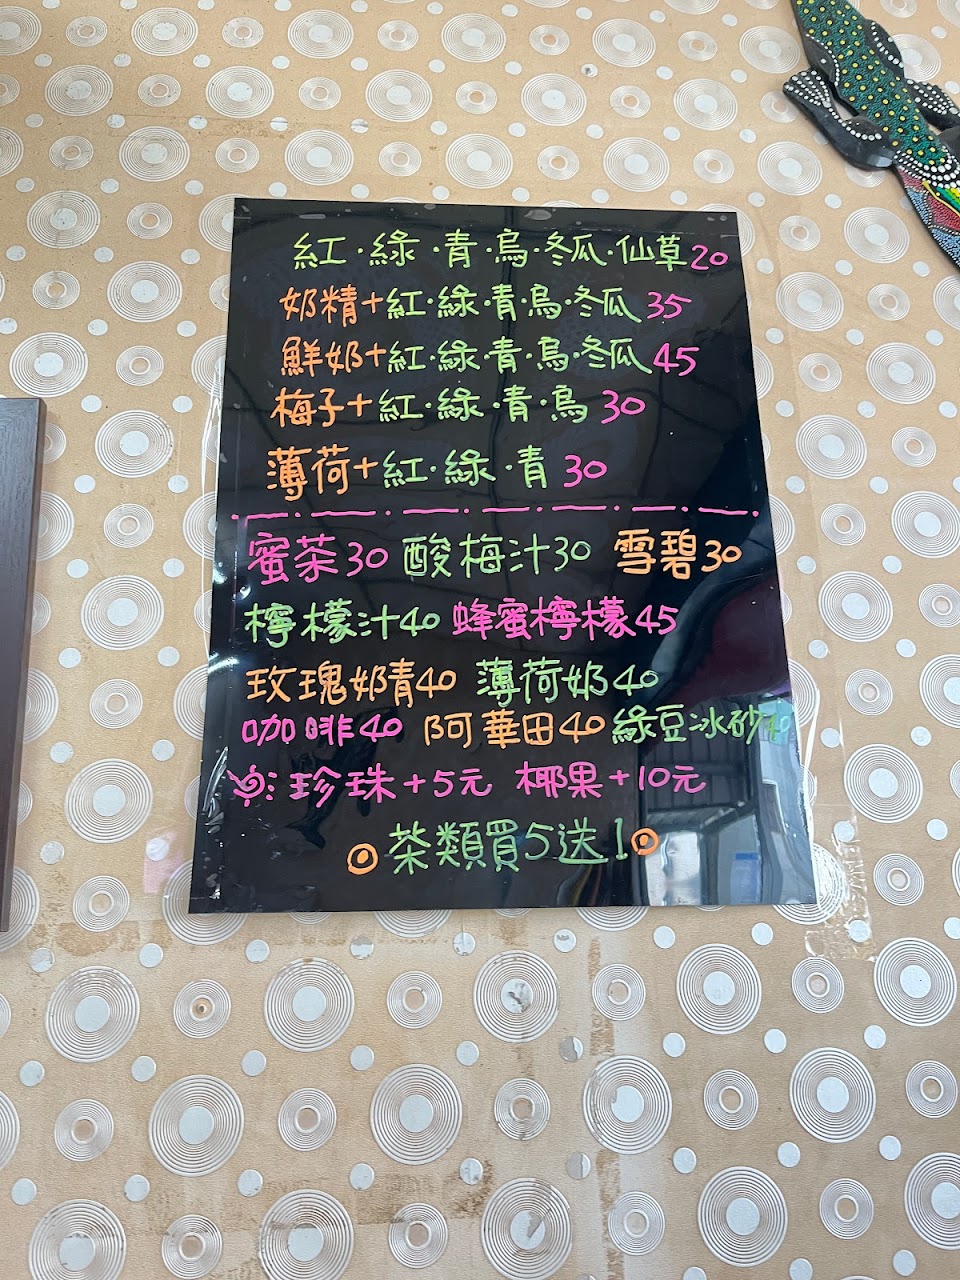 紅·綠·青·烏·冬瓜·仙草20
奶精+紅·綠·青·烏·冬瓜35
鮮奶+紅·綠·青·烏·冬瓜45
梅子+紅·綠·青·烏30
薄荷+紅·綠·青30
蜜茶30 酸梅汁30 雪碧30
檸檬汁40 蜂蜜檸檬45
玫瑰奶青40 薄荷奶40
咖啡40 阿華田40 綠豆冰砂40
※:珍珠+5元 椰果+10元
茶類買5送1